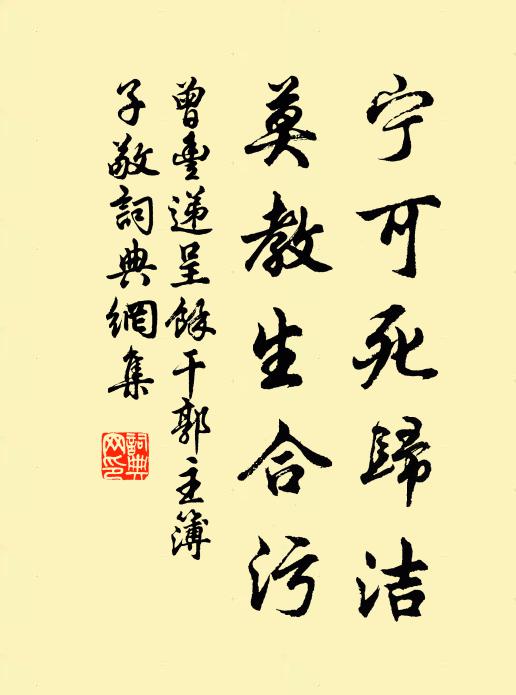 宁可死歸洁
莫教生合污
曾豊递呈餘干郭主簿
子敬詞典網集
詞典网印